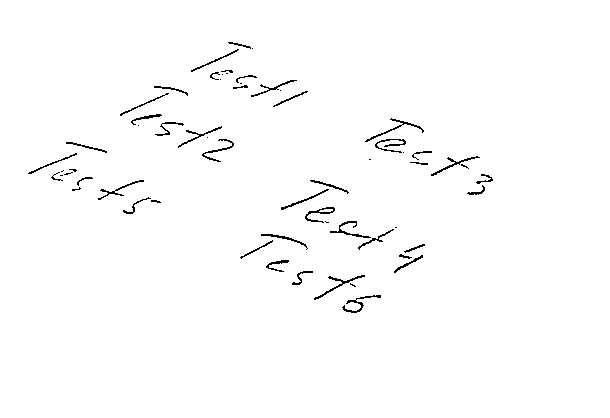 Test1
Test2
Test5
Test3
Test4
Test6